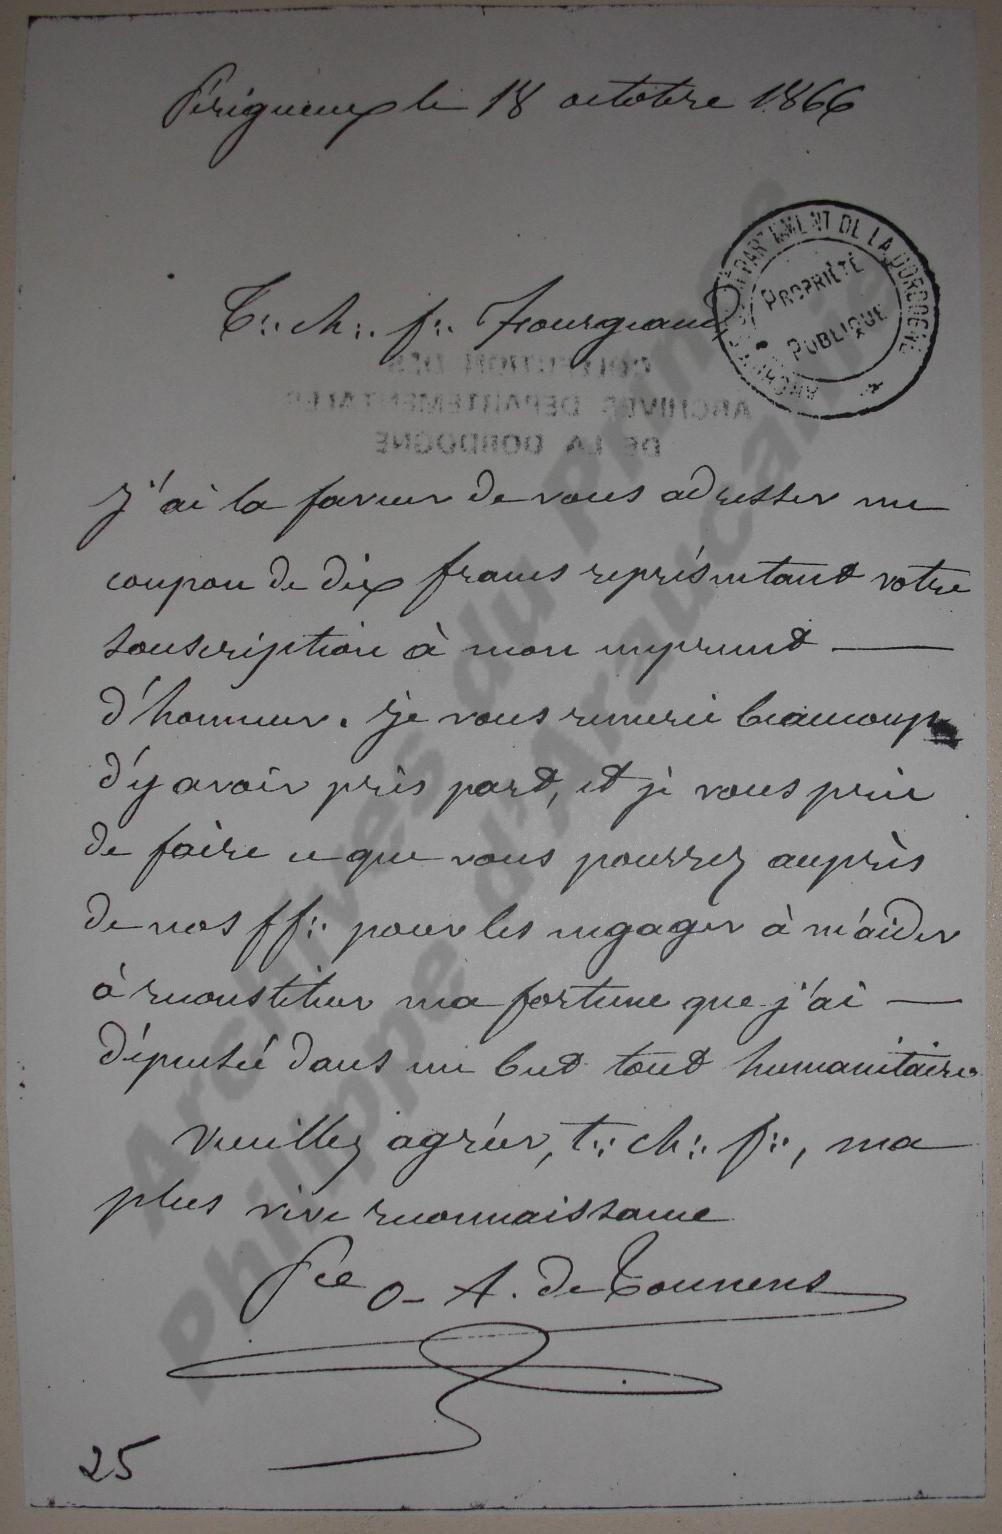 Périgueux le 18 octobre 1866
T∴ ch∴ f∴ Fourgeaud
ARCHIVES DU DÉPARTEMENT DE LA DORDOGNE
PROPRIÉTÉ
PUBLIQUE
COLLECTION DES
ARCHIVES DEPARTEMENTALES
DE LA DORDOGNE
J'ai la faveur de vous adresser un
coupon de dix francs représentant votre
souscription à mon emprunt —
d'honneur. Je vous remercie beaucoup
d'y avoir pris part, et je vous prie
de faire ce que vous pourrez auprès
de nos ff∴ pour les engager à m'aider
à reconstituer ma fortune que j'ai —
dépensée dans un but tout humanitaire.
Veuillez agréer, t∴ ch∴ f∴, ma
plus vive reconnaissance
Pce O-A. de Tounens
25
Archives du Prince
Philippe d'Araucanie